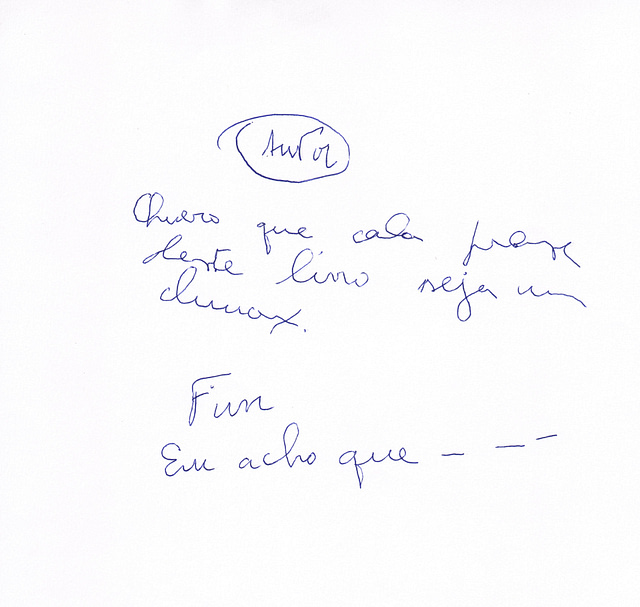 Autor
Quero que cada frase
deste livro seja um
climax.
Fim
Eu acho que — — —